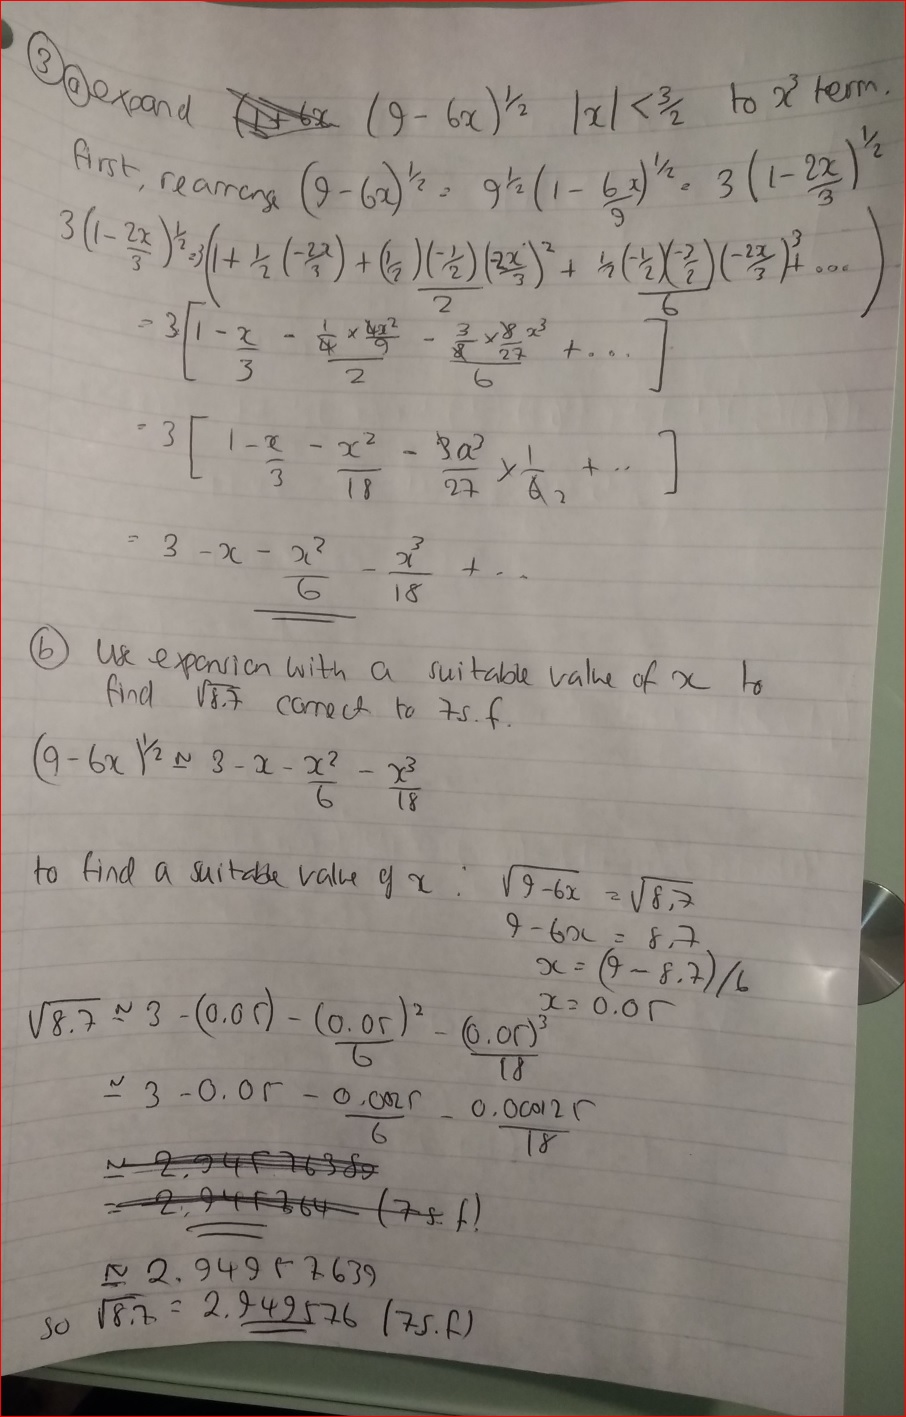 ③ ⓐ expand (9 - 6x)^½ |x| < 3/2 to x³ term.
first, rearrange (9 - 6x)^½ = 9^½ (1 - 6x/9)^½ = 3 (1 - 2x/3)^½
3 (1 - 2x/3)^½ = 3 (1 + ½ (-2x/3) + (½)(-½)/2 (-2x/3)² + ½(-½)(-3/2)/6 (-2x/3)³ + ....)
= 3 [1 - x/3 - (1/4 × 4x²/9)/2 - (3/8 × 8/27 x³)/6 + ....]
= 3 [1 - x/3 - x²/18 - 3x³/27 × 1/6 2 + ..]
= 3 - x - x²/6 - x³/18 + ...
ⓑ Use expansion with a suitable value of x to
find √8.7 correct to 7s.f.
(9 - 6x)^½ ≈ 3 - x - x²/6 - x³/18
to find a suitable value of x : √9-6x = √8.7
9 - 6x = 8.7
x = (9 - 8.7)/6
x = 0.05
√8.7 ≈ 3 - (0.05) - (0.05)²/6 - (0.05)³/18
≈ 3 - 0.05 - 0.0025/6 - 0.000125/18
≈ 2.94576389
= 2.945764 (7s.f)
≈ 2.94957639
so √8.7 = 2.949576 (7s.f)